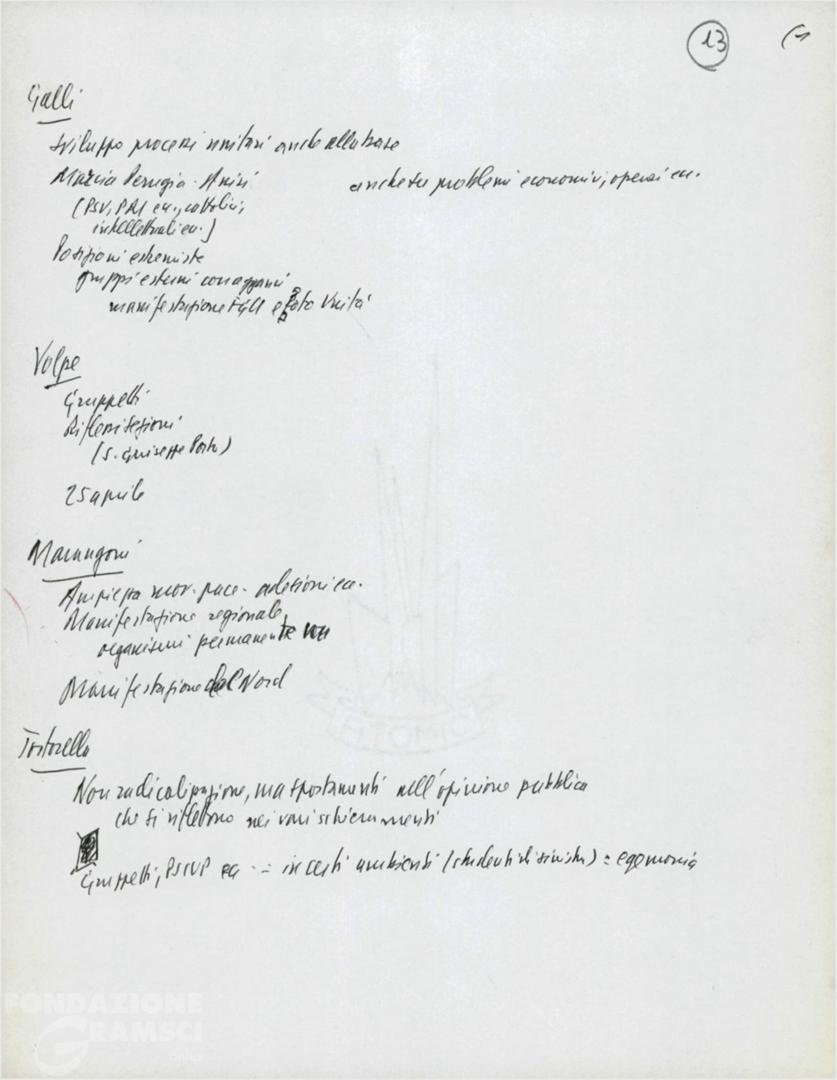 13
Galli
Sviluppo processi unitari anche alla base
Marcia Perugia-Assisi anche su problemi economici, operai ecc.
(PSU, PRI ecc., cattolici,
intellettuali ecc.)
Posizioni estremiste
gruppi esterni con appoggi
manifestazione FGCI e foto Unità
Volpe
Gruppetti
Riflessi sezioni
(S. Giuseppe Porto)
25 aprile
Marangoni
Ampiezza mov. pace - adesioni ecc.
Manifestazione regionale,
organismi permanente
Manifestazione del Nord
Tortorella
Non radicalizzazione, ma spostamenti nell'opinione pubblica
che si riflettono nei vari schieramenti
Gruppetti, PSIUP ecc. - in certi ambienti (studenti di sinistra) = egemonia
ATOMIC
FONDAZIONE
GRAMSCI
onlus